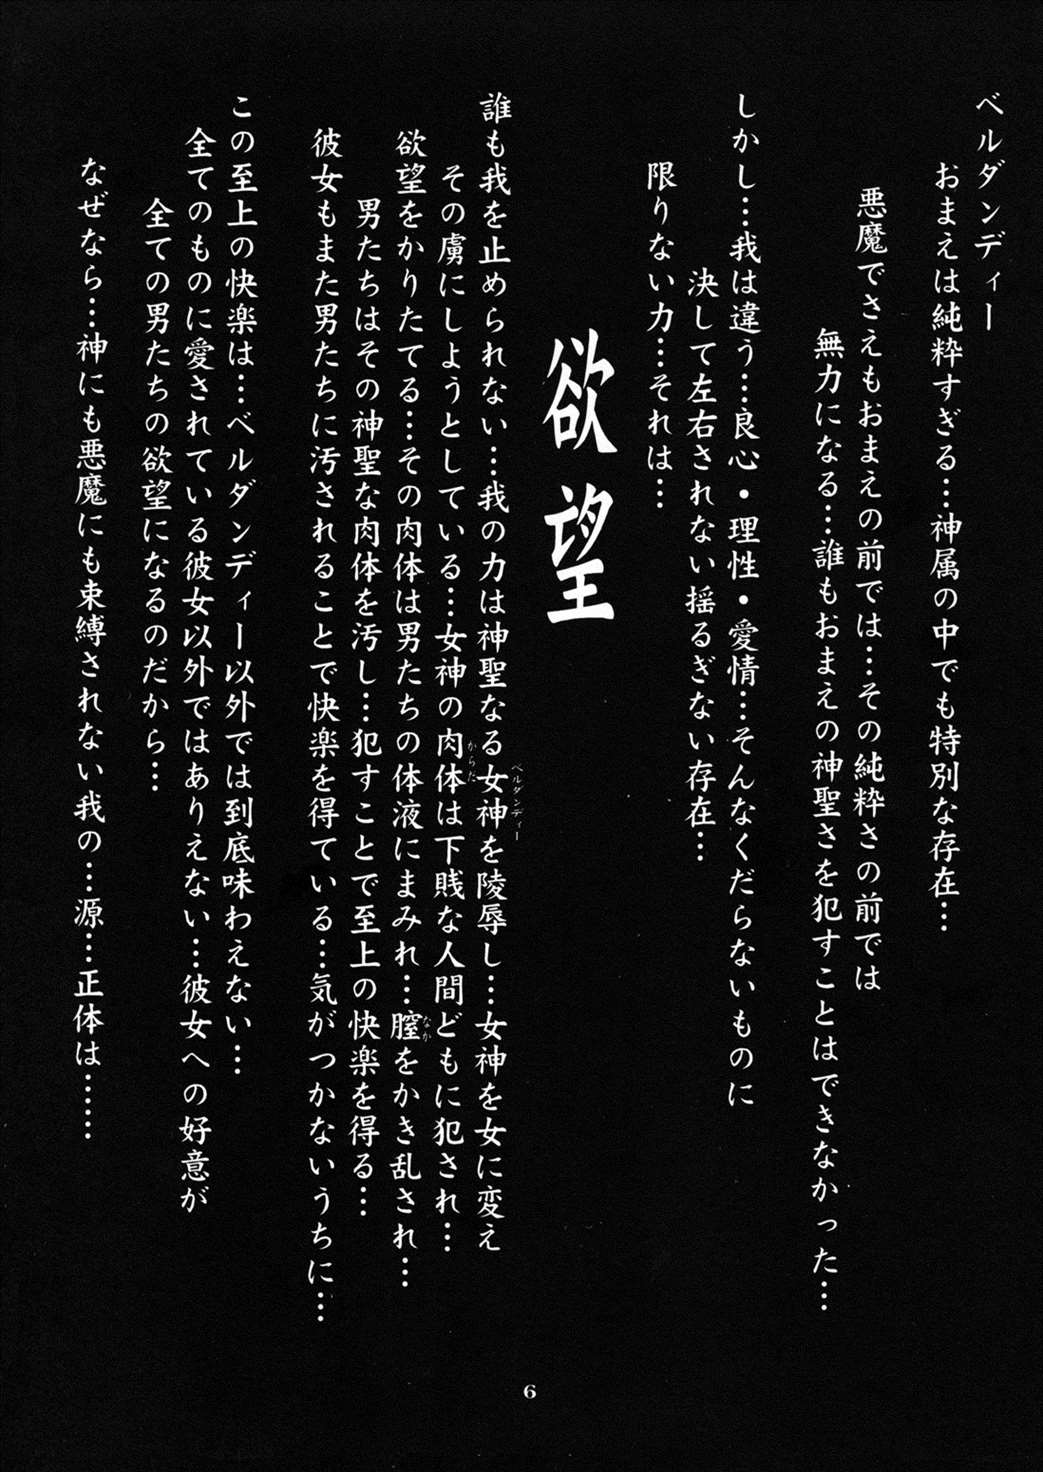 ベルダンディー
おまえは純粋すぎる…神属の中でも特別な存在…
悪魔でさえもおまえの前では…その純粋さの前では
無力になる…誰もおまえの神聖さを犯すことはできなかった…
しかし…我は違う…良心・理性・愛情…そんなくだらないものに
決して左右されない揺るぎない存在…
限りない力…それは…
欲望
誰も我を止められない…我の力は神聖なる女神を陵辱し…女神を女に変え
ベルダンディー
その虜にしようとしている…女神の肉体は下賎な人間どもに犯され…
からだ
欲望をかりたてる…その肉体は男たちの体液にまみれ…膣をかき乱され…
なか
男たちはその神聖な肉体を汚し…犯すことで至上の快楽を得る…
彼女もまた男たちに汚されることで快楽を得ている…気がつかないうちに…
この至上の快楽は…ベルダンディー以外では到底味わえない…
全てのものに愛されている彼女以外ではありえない…彼女への好意が
全ての男たちの欲望になるのだから…
なぜなら…神にも悪魔にも束縛されない我の…源…正体は……
6